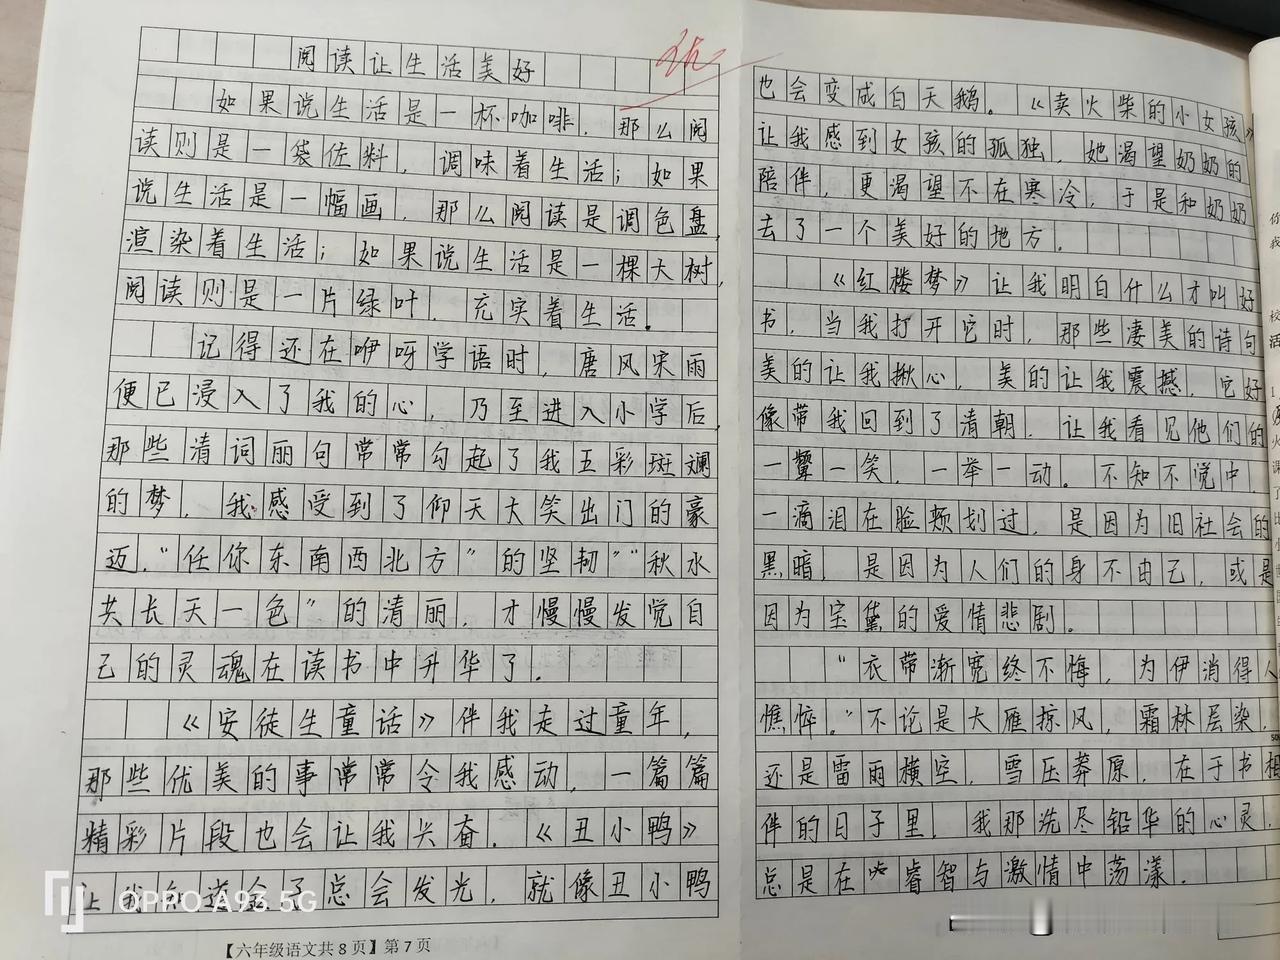 阅读让生活美好
优
如果说生活是一杯咖啡，那么阅
读则是一袋佐料，调味着生活；如果
说生活是一幅画，那么阅读是调色盘，
渲染着生活；如果说生活是一棵大树，
阅读则是一片绿叶，充实着生活。
记得还在咿呀学语时，唐风宋雨
便已浸入了我的心，乃至进入小学后，
那些清词丽句常常勾起了我五彩斑斓
的梦，我感受到了仰天大笑出门的豪
迈，“任你东南西北方”的坚韧“”秋水
共长天一色”的清丽，才慢慢发觉自
己的灵魂在读书中升华了．
《安徒生童话》伴我走过童年，
那些优美的事常常令我感动，一篇篇
精彩片段也会让我兴奋．《丑小鸭》
让我知道金子总会发光，就像丑小鸭
【六年级语文共8页】第7页
也会变成白天鹅。《卖火柴的小女孩》
让我感到女孩的孤独，她渴望奶奶的
陪伴 更渴望不在寒冷，于是和奶奶
去了一个美好的地方．
《红楼梦》让我明白什么才叫好
书，当我打开它时，那些凄美的诗句
美的让我揪心，美的让我震撼，它好
像带我回到了清朝，让我看见他们的
一颦一笑，一举一动。不知不觉中，
一滴泪在脸颊划过，是因为旧社会的
黑暗，是因为人们的身不由己，或是
因为宝黛的爱情悲剧。
“衣带渐宽终不悔，为伊消得人
憔悴。”不论是大雁掠风，霜林层染，
还是雷雨横空，雪压莽原，在于书相
伴的日子里，我那洗尽铅华的心灵，
总是在睿智与激情中荡漾．
OPPO A93 5G